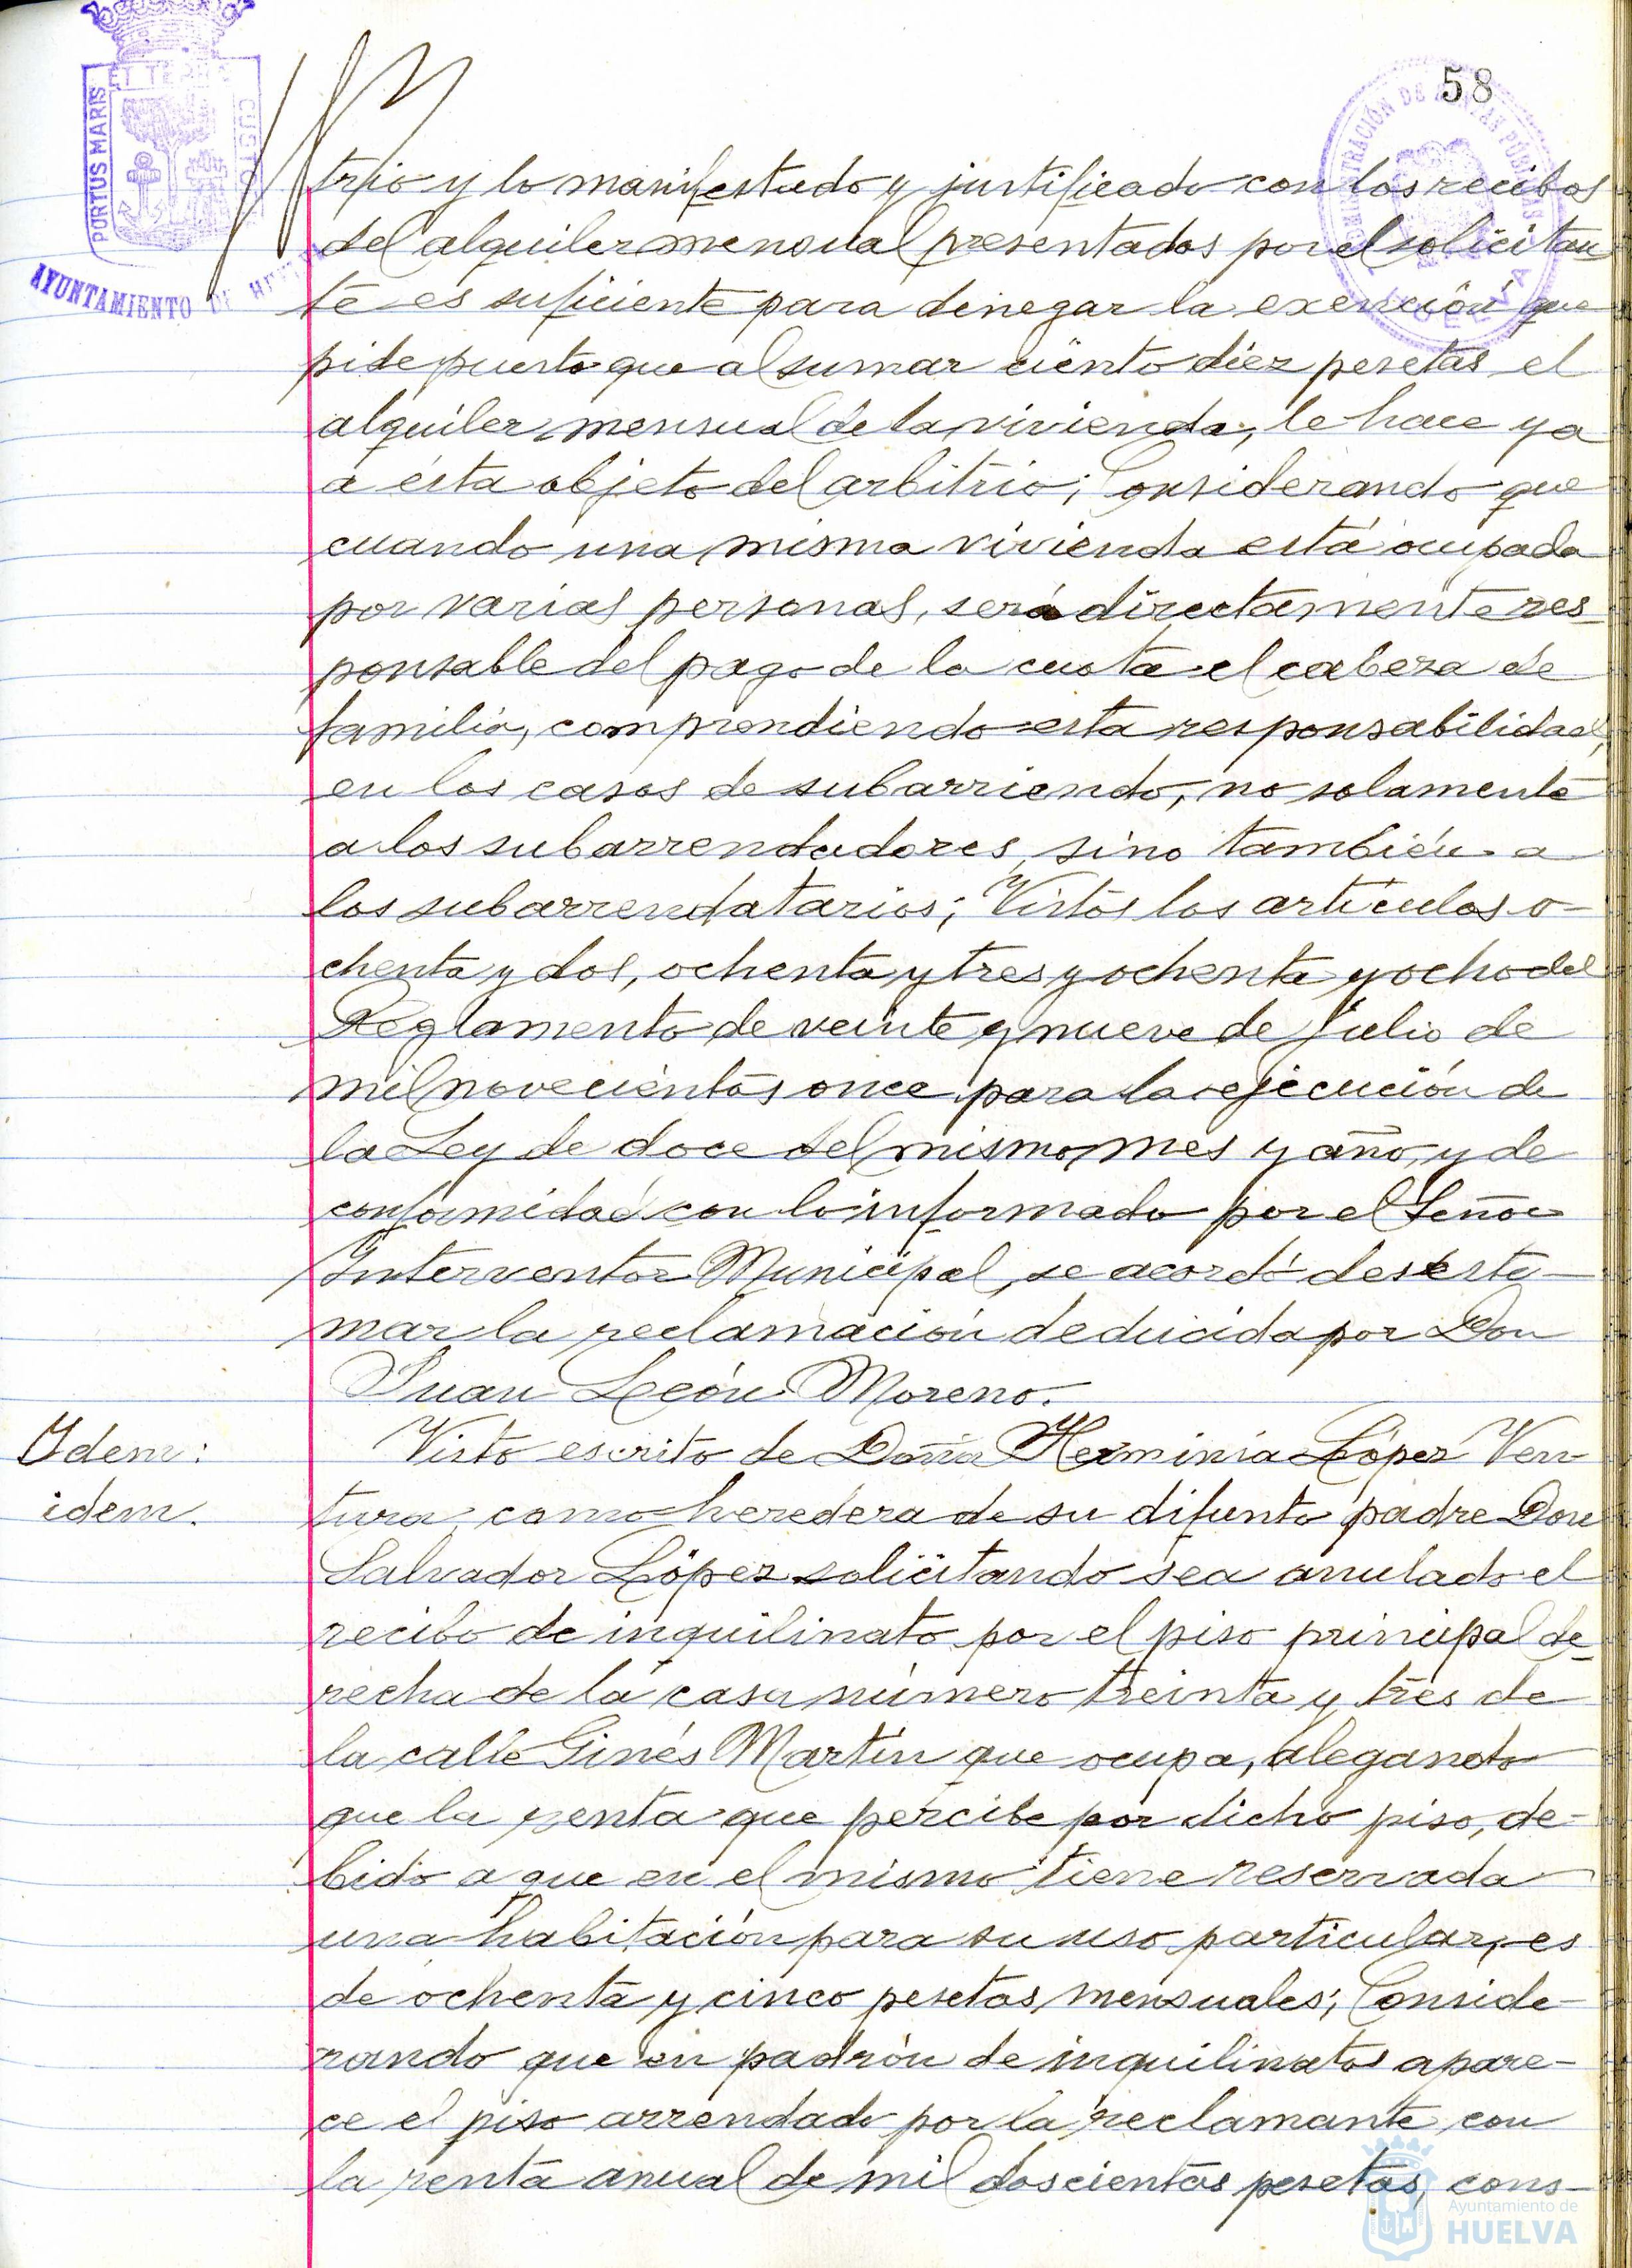 58
PORTUS MARIS
ET TERRÆ
CUSTO
AYUNTAMIENTO DE HU
ADMINISTRACIÓN DE RENTAS PÚBLICAS
HUELVA
trio y lo manifestado y justificado con los recibos
del alquiler mensual presentados por el solicitan
te es suficiente para denegar la exención que
pide puesto que al sumar ciento diez pesetas el
alquiler mensual de la vivienda, le hace ya
a ésta objeto del arbitrio; Considerando que
cuando una misma vivienda está ocupada
por varias personas, será directamente res_
ponsable del pago de la cuota el cabeza de
familia, comprendiendo esta responsabilidad,
en los casos de subarriendo, no solamente
a los subarrendadores, sino también a
los subarrendatarios; Vistos los artículos o-
chenta y dos, ochenta y tres y ochenta y ocho del
Reglamento de veinte y nueve de Julio de
mil novecientos once para la ejecución de
la Ley de doce del mismo mes y año, y de
conformidad con lo informado por el Señor
Interventor Municipal, se acordó desesti-
mar la reclamación deducida por Don
Juan León Moreno.
Idem:
idem.
Visto escrito de Doña Herminia López Ven
tura, como heredera de su difunto padre Don
Salvador López solicitando sea anulado el
recibo de inquilinato por el piso principal de_
recha de la casa número treinta y tres de
la calle Ginés Martín que ocupa, alegando
que la renta que percibe por dicho piso, de-
bido a que en el mismo tiene reservada
una habitación para su uso particular, es
de ochenta y cinco pesetas mensuales; Conside-
rando que en padrón de inquilinatos apare-
ce el piso arrendado por la reclamante con
la renta anual de mil doscientas pesetas, cons-
Ayuntamiento de
HUELVA